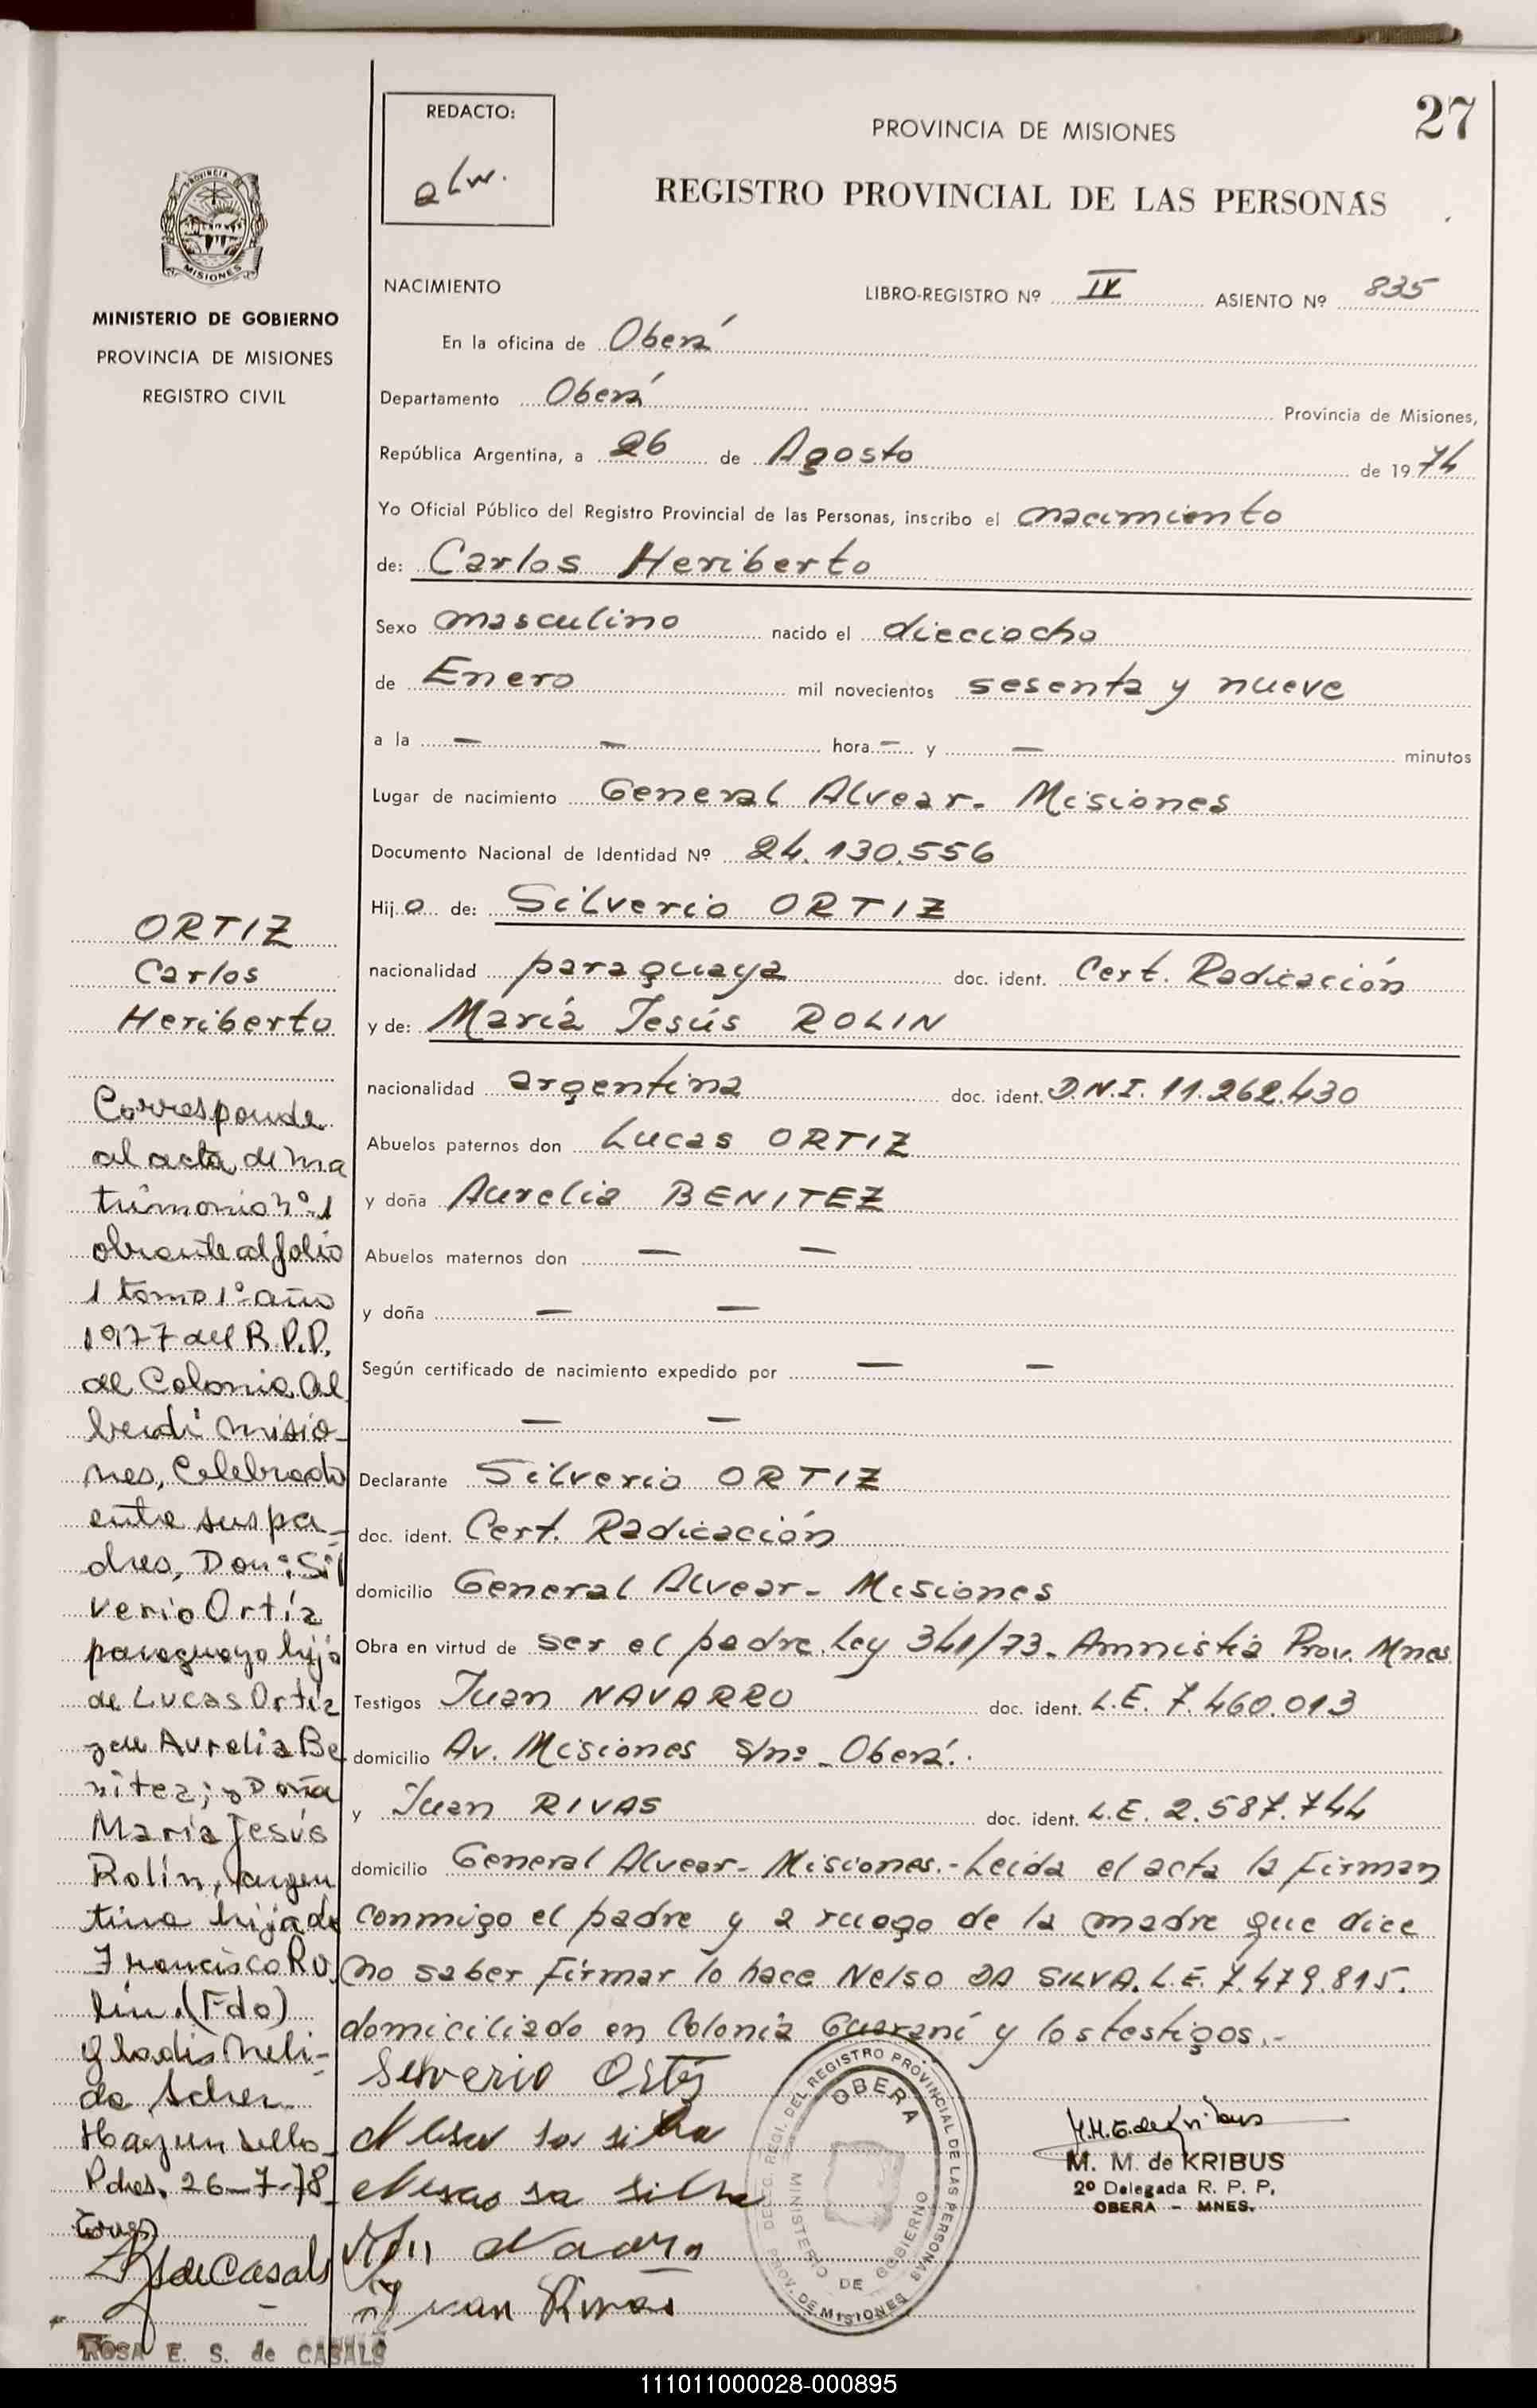 27
REDACTO:
alw.
PROVINCIA DE MISIONES
REGISTRO PROVINCIAL DE LAS PERSONAS
PROVINCIA DE
MISIONES
MINISTERIO DE GOBIERNO
PROVINCIA DE MISIONES
REGISTRO CIVIL
NACIMIENTO
LIBRO-REGISTRO Nº IV ASIENTO Nº 835
En la oficina de Oberá
Departamento Oberá Provincia de Misiones,
República Argentina, a 26 de Agosto de 1974
Yo Oficial Público del Registro Provincial de las Personas, inscribo el nacimiento
de: Carlos Heriberto
Sexo masculino nacido el dieciocho
de Enero mil novecientos sesenta y nueve
a la — — hora — y — minutos
Lugar de nacimiento General Alvear- Misiones
Documento Nacional de Identidad Nº 24.130.556
Hijo de: Silverio ORTIZ
nacionalidad paraguaya doc. ident. Cert. Radicación
y de: María Jesús ROLIN
nacionalidad argentina doc. ident. D.N.I. 11.262.430
Abuelos paternos don Lucas ORTIZ
y doña Aurelia BENITEZ
Abuelos maternos don — —
y doña — —
Según certificado de nacimiento expedido por — —
— —
Declarante Silverio ORTIZ
doc. ident. Cert. Radicación
domicilio General Alvear- Misiones
Obra en virtud de ser el padre. Ley 341/73- Amnistía Prov. Mnes
Testigos Juan NAVARRO doc. ident. L.E. 7.460.013
domicilio Av. Misiones s/nº - Oberá.
y Juan RIVAS doc. ident. L.E. 2.587.744
domicilio General Alvear- Misiones.- Leída el acta la firman
conmigo el padre y a ruego de la madre que dice
no saber firmar lo hace Nelso DA SILVA. L.E. 7.479.815.
domiciliado en Colonia Guaraní y los testigos.-
Silverio Ortiz
Juan Rivas
DEL REGISTRO PROVINCIAL DE LAS PERSONAS
OBERA
MINISTERIO DE GOBIERNO
PROV. DE MISIONES
M. M. de KRIBUS
2º Delegada R. P. P.
OBERA - MNES.
ORTIZ
Carlos
Heriberto
Corresponde
al acta de ma
trimonio nº 1
obrante al folio
1 tomo 1º año
1977 del R.P.P.
de Colonia Al
berdi Misio-
nes, Celebrado
entre sus pa-
dres, Don: Sil
verio Ortíz
paraguayo hijo
de Lucas Ortíz
y de Aurelia Be
nitez; y Doña
María Jesús
Rolín, argen
tina hija de
Francisco Ro
lin. (Fdo)
Gladis Neli-
da
Hay un sello-
Pdas. 26-7-78
ROSA E. S. de CASALS
111011000028-000895